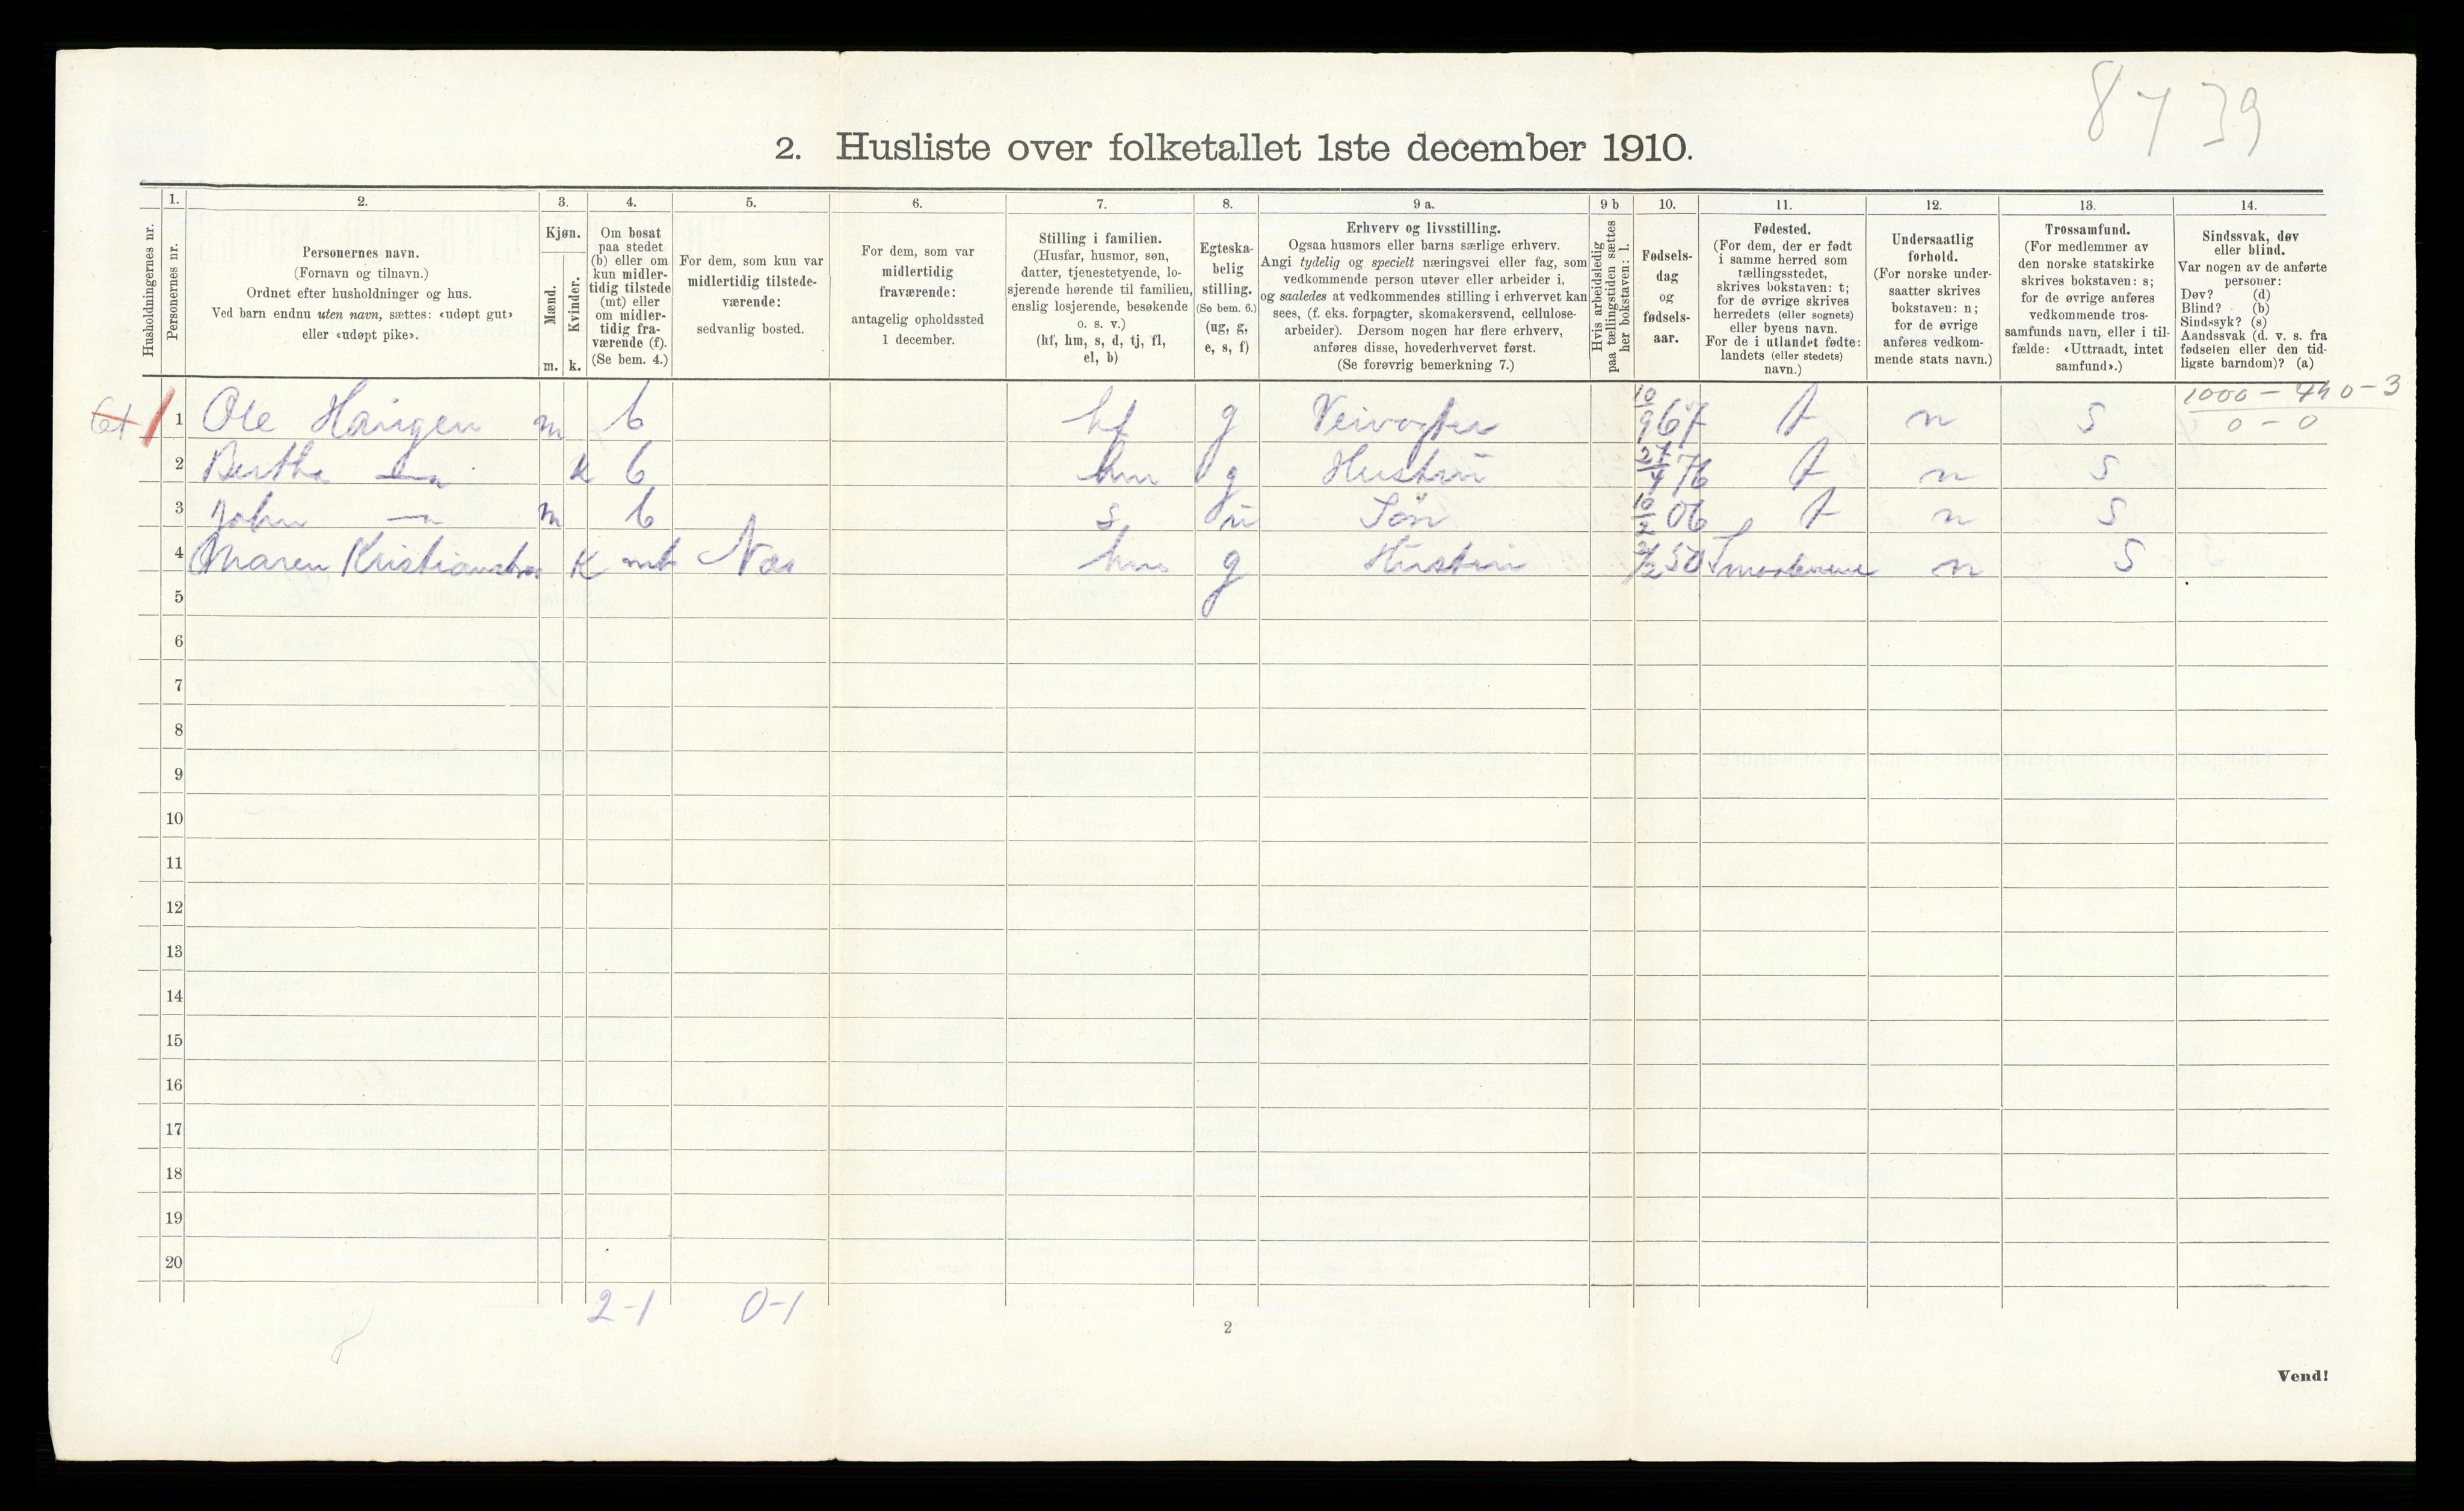 8739
2. Husliste over folketallet 1ste december 1910.
Husholdningernes nr.
1. Personernes nr.
2. Personernes navn. (Fornavn og tilnavn.) Ordnet efter husholdninger og hus. Ved barn endnu uten navn, sættes: «udøpt gut» eller «udøpt pike».
3. Kjøn. Mænd. m. Kvinder. k.
4. Om bosat paa stedet (b) eller om kun midlertidig tilstede (mt) eller om midlertidig fraværende (f). (Se bem. 4.)
5. For dem, som kun var midlertidig tilstedeværende: sedvanlig bosted.
6. For dem, som var midlertidig fraværende: antagelig opholdssted 1 december.
7. Stilling i familien. (Husfar, husmor, søn, datter, tjenestetyende, losjerende hørende til familien, enslig losjerende, besøkende o. s. v.) (hf, hm, s, d, tj, fl, el, b)
8. Egteskabelig stilling. (Se bem. 6.) (ug, g, e, s, f)
9 a. Erhverv og livsstilling. Ogsaa husmors eller barns særlige erhverv. Angi tydelig og specielt næringsvei eller fag, som vedkommende person utøver eller arbeider i, og saaledes at vedkommendes stilling i erhvervet kan sees, (f. eks. forpagter, skomakersvend, cellulosearbeider). Dersom nogen har flere erhverv, anføres disse, hovederhvervet først. (Se forøvrig bemerkning 7.)
9 b Hvis arbeidsledig paa tællingstiden sættes her bokstaven: l.
10. Fødselsdag og fødselsaar.
11. Fødested. (For dem, der er født i samme herred som tællingsstedet, skrives bokstaven: t; for de øvrige skrives herredets (eller sognets) eller byens navn. For de i utlandet fødte: landets (eller stedets) navn.)
12. Undersaatlig forhold. (For norske undersaatter skrives bokstaven: n; for de øvrige anføres vedkommende stats navn.)
13. Trossamfund. (For medlemmer av den norske statskirke skrives bokstaven: s; for de øvrige anføres vedkommende trossamfunds navn, eller i tilfælde: «Uttraadt, intet samfund».)
14. Sindssvak, døv eller blind. Var nogen av de anførte personer: Døv? (d) Blind? (b) Sindssyk? (s) Aandssvak (d. v. s. fra fødselen eller den tidligste barndom)? (a)
1000 - 440 - 3
0 - 0
1 Ole Haugen m b hf g Veivogter 10/9 67 t n s
2 Bertha —"— k b hm g Hustru 27/4 76 t n s
3 John —"— m b s u Søn 10/2 06 t n s
4 Maren K mt Næs hm g Hustru 50 n s
5
6
7
8
9
10
11
12
13
14
15
16
17
18
19
20
2-1 0-1
2
Vend!